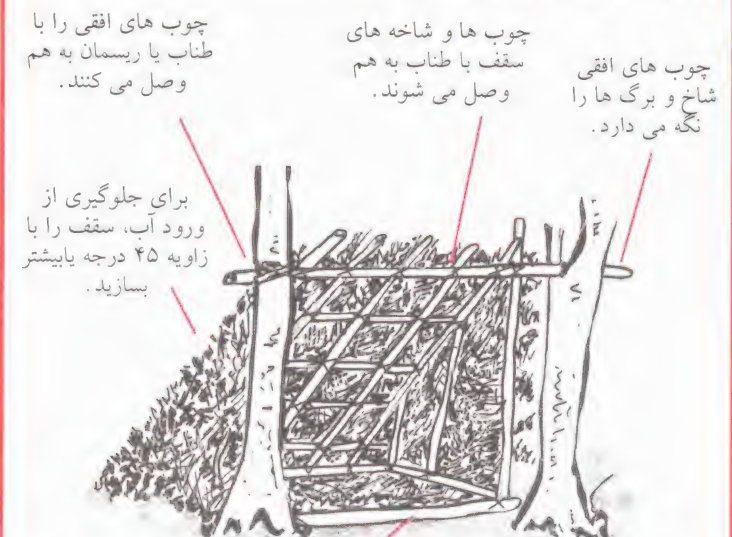 چوب های افقی را با
طناب یا ریسمان به هم
وصل می کنند.
چوب ها و شاخه های
سقف با طناب به هم
وصل می شوند.
چوب های افقی
شاخ و برگ ها را
نگه می دارد.
برای جلوگیری از
ورود آب، سقف را با
زاویه ۴۵ درجه یابیشتر
بسازید.